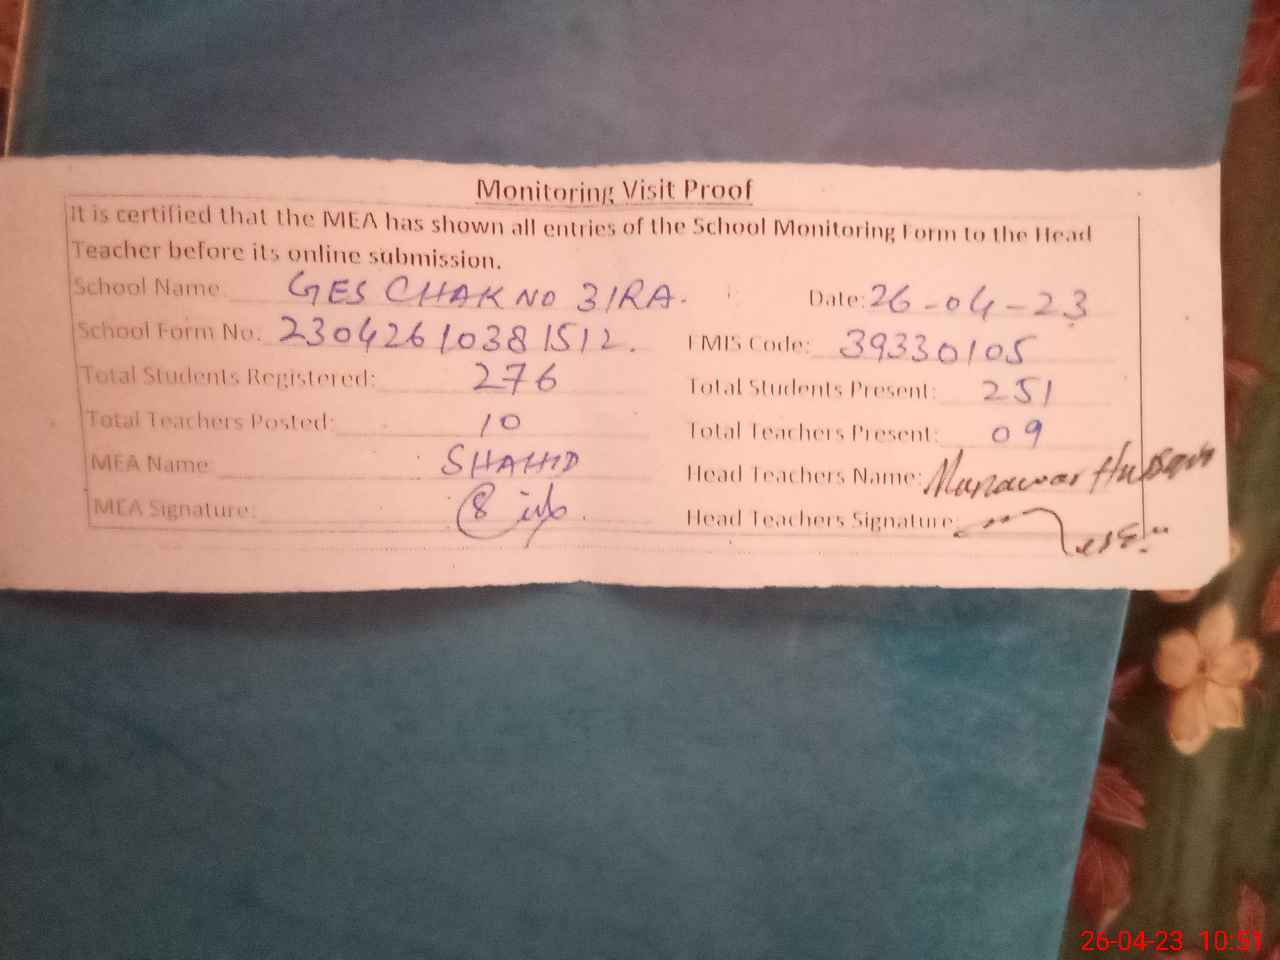 Monitoring Visit Proof
It is certified that the MEA has shown all entries of the School Monitoring Form to the Head
Teacher before its online submission.
School Name: GES CHAK NO 3/RA. Date: 26-04-23
School Form No. 23042610381512. EMIS Code: 39330105
Total Students Registered: 276 Total Students Present: 251
Total Teachers Posted: 10 Total Teachers Present: 09
MEA Name: SHAHID Head Teachers Name: Munawar Hussain
MEA Signature: Head Teachers Signature:
26-04-23 10:51